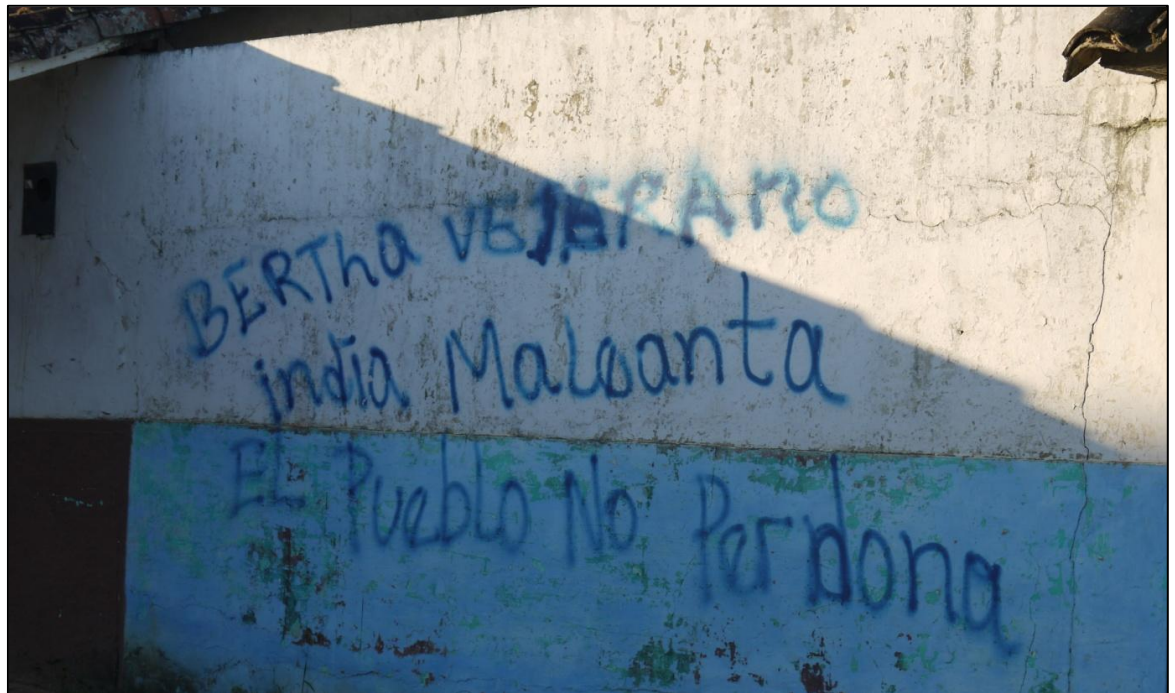 BERTha VEJERANO
india Malvanta
EL Pueblo No Perdona